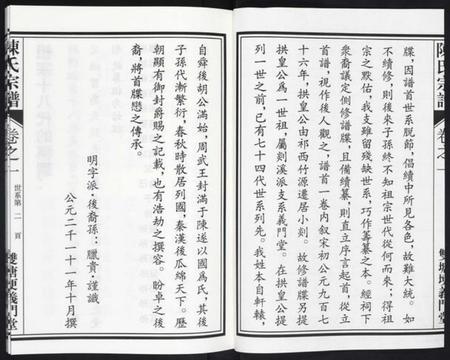 陳氏宗譜
卷之一
牒，因譜首世系脱節，倡續中所見各色，故難大統。如
不續修，則後來子孫終不知祖宗世代從何而來；得祖
宗之默佑，我支雖留殘缺世系，巧作籌纂之本。經祠下
衆裔議定側修譜牒，且備續纂，則直立序言起首，從立
首譜，視作後人觀之，譜首一卷内叙宋初公元九百七
十六年，拱皇公由祁西竹源遷居小刻。故修譜牒另提
拱皇公爲一世祖，屬剡溪派支系義門堂。在拱皇公提
列一世之前，已有七十四代世系列先。我姓本自軒轅，
自舜後胡公滿始，周武王封滿于陳遂以國爲氏，其後
子孫代漸繁衍，春秋時散居列國，秦漢後瓜綿天下。歷
朝顯有御封爵賜之記載，也有浩劫之撰容。盼卓之後
裔，將首牒戀之傳承。
明字派·後裔孫：臘貴·謹識
公元二千一十一年十月撰
陳氏宗譜
卷之一
世系第 二 頁
義門堂